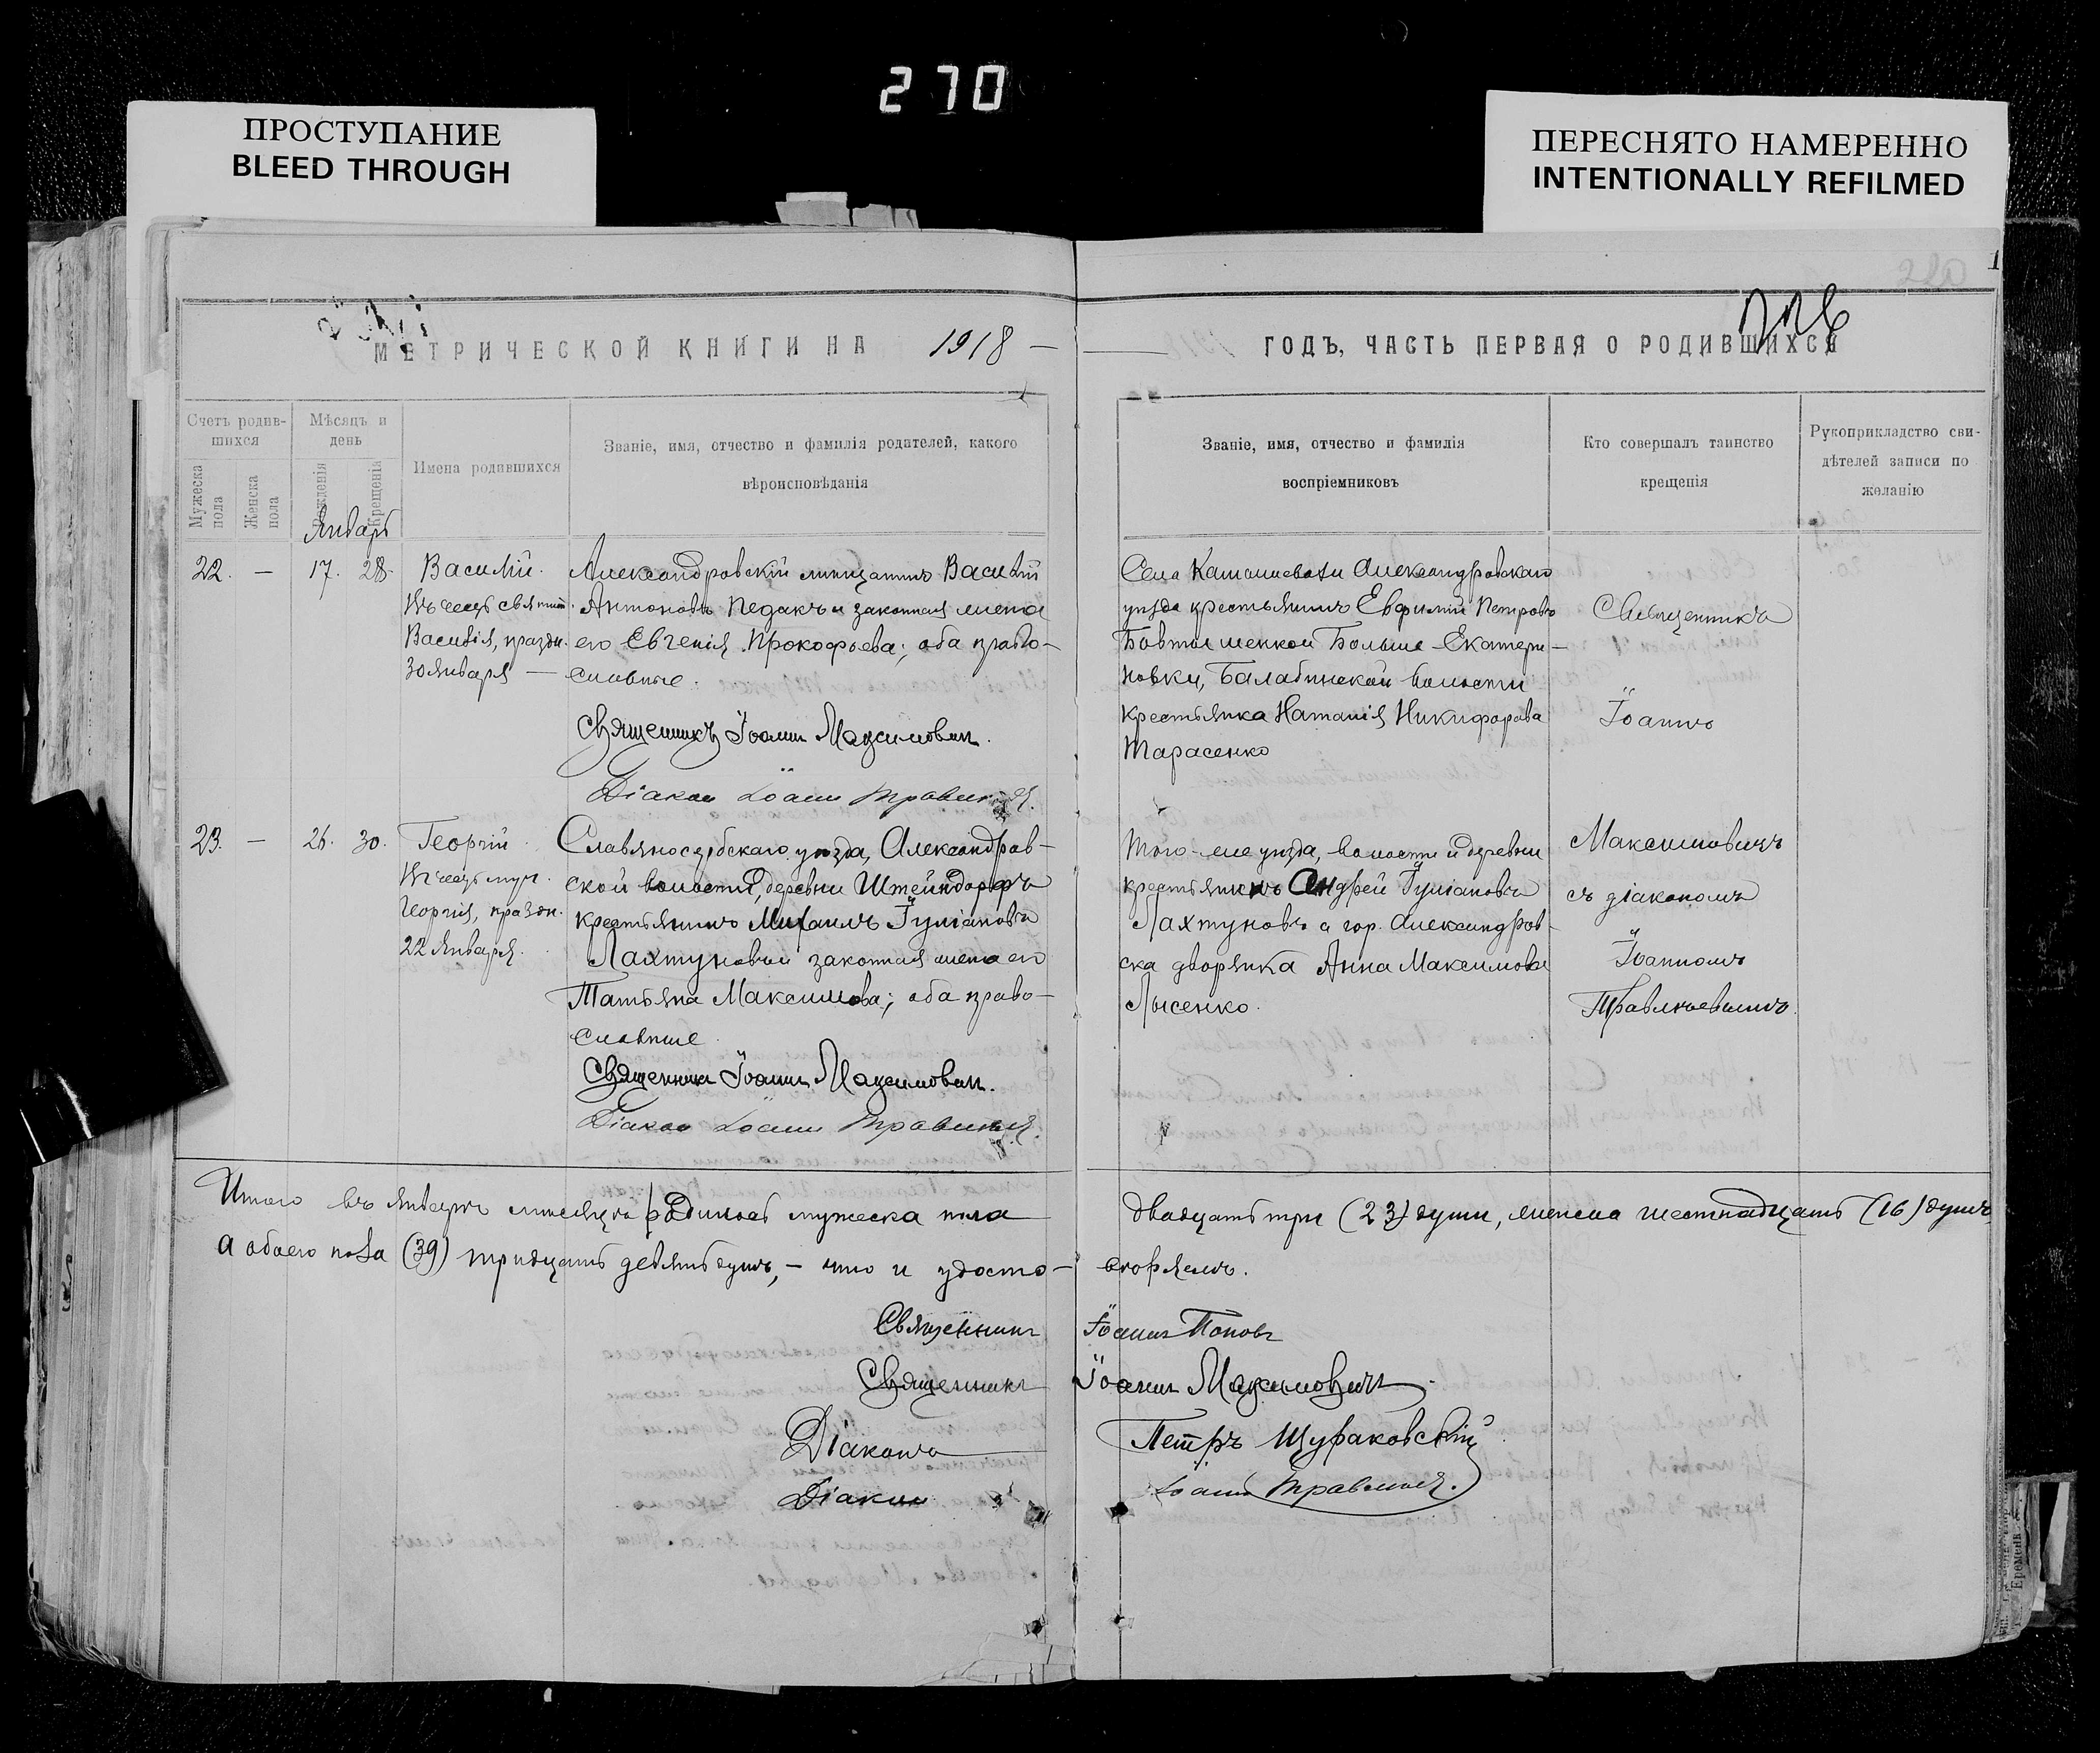 270
ПРОСТУПАНИЕ
BLEED THROUGH
ПЕРЕСНЯТО НАМЕРЕННО
INTENTIONALLY REFILMED
МЕТРИЧЕСКОЙ КНИГИ НА 1918
ГОДЪ, ЧАСТЬ ПЕРВАЯ О РОДИВШИХСЯ
Счетъ родив-
шихся
Мужеска пола
Женска пола
Мѣсяцъ и
день
Рожденія
Крещенія
Имена родившихся
Званіе, имя, отчество и фамилія родителей, какого
вѣроисповѣданія
Январь
22. — 17. 28.
Василій.
Въ честь святит.
Василія, праздн.
30 января —
Александровскій мѣщанинъ Василій
Антоновъ Педакъ и законная жена
его Евгенія Прокофьева; оба право-
славные.
Священникъ Іоаннъ Максимович.
Діакон Іоанн
23. — 26. 30.
Георгій
Въ честь муч.
Георгія, праздн.
22 января.
Славяносербскаго уѣзда, Александров-
ской волости, деревни Штейндорфъ
крестьянинъ Михаилъ Іуліановъ
Лахтуновъ и законная жена его
Татьяна Максимова; оба право-
славные
Священникъ Іоаннъ Максимович.
Діакон Іоанн
Званіе, имя, отчество и фамилія
воспріемниковъ
Кто совершалъ таинство
крещенія
Рукоприкладство сви-
дѣтелей записи по
желанію
Села Камышевахи Александровскаго
уѣзда крестьянинъ Евфимій Петровъ
Больше-Екатери-
новки, Балабинской волости
крестьянка Наталія Никифорова
Тарасенко
Священникъ
Іоаннъ
Того-же уѣзда, волости и деревни
крестьянинъ Андрей Іуліановъ
Лахтуновъ и гор. Александров-
ска дворянка Анна Максимова
Лысенко.
Максимовичъ
съ діакономъ
Іоанномъ
Итого въ январѣ мѣсяцѣ родилось мужеска пола
а обоего пола (39) тридцать девять душъ, — что и удосто-
двадцать три (23) души, женска шестнадцать (16) душъ,
вѣряемъ.
Священникъ Іоаннъ Поповъ
Священникъ Іоаннъ Максимовичъ.
Діаконъ Петръ Щураковскій
Діакон Іоанн